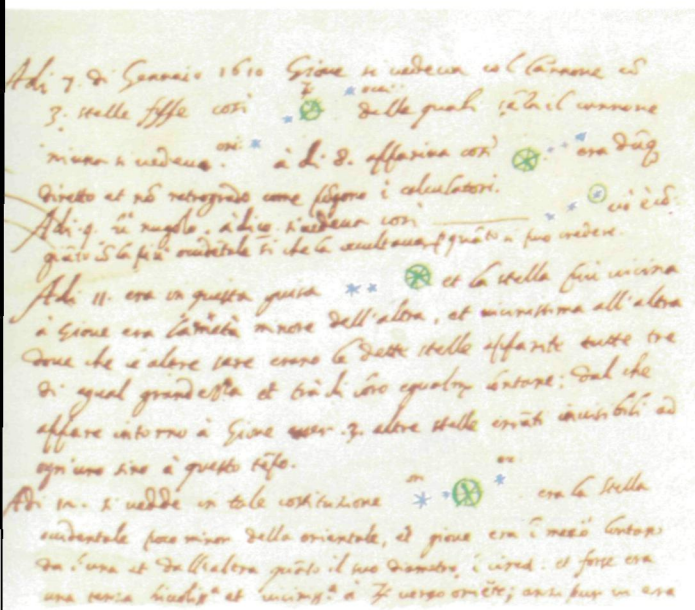 Adi 7. di Gennaio 1610 Giove si vedeva col Cannone cō
3. stelle fisse così delle quali il cannone
niuna si vedeva. à dì 8. appariva così era dūq
diretto et nō retrogrado come i calculatori.
Adi 9. fù nugolo. à dì 10. si vedeva così ciò è cō
la più occidentale sì che la occultava quāto si può credere.
Adi 11. era in questa guisa et la stella più vicina
à Giove era la metà minore dell'altra, et vicinissima all'altra
dove che le altre sere erano le dette stelle apparite tutte tre
di egual grandezza et trà di loro equalmᵉ lontane; dal che
appare intorno à Giove esser 3. altre stelle erranti invisibili ad
ogniuno sino à questo tēpo.
Adi 12. si vedde in tale costituzione era la stella
occidentale poco minor della orientale, et giove era ī mezō lontano
da l'una et dall'altra quāto il suo diametro ī circa: et forse era
una terza et à ♃ verso oriēte; anzi pur vi era